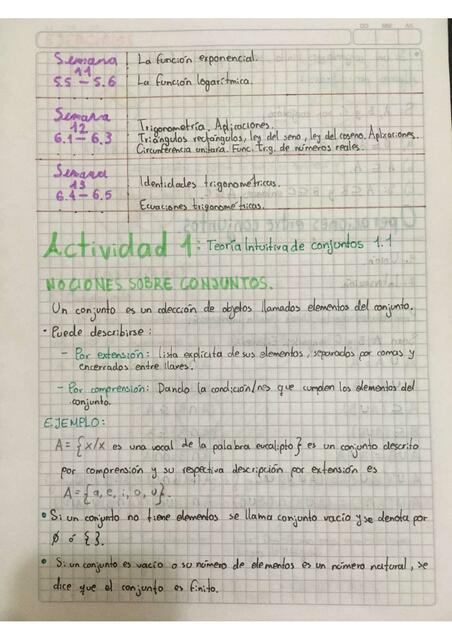 Semana 11
5.5 – 5.6
La función exponencial.
La función logarítmica.
Semana 12
6.1 – 6.3
Trigonometría. Aplicaciones.
Triángulos rectángulos, ley del seno, ley del coseno. Aplicaciones.
Circunferencia unitaria. Func. Trg. de números reales.
Semana 13
6.4 – 6.5
Identidades trigonométricas.
Ecuaciones trigonométricas.
Actividad 1: Teoría Intuitiva de conjuntos 1.1
NOCIONES SOBRE CONJUNTOS.
Un conjunto es un colección de objetos llamados elementos del conjunto.
• Puede describirse:
– Por extensión: lista explícita de sus elementos, separados por comas y
encerrados entre llaves.
– Por comprensión: Dando la condición/nes que cumplen los elementos del
conjunto.
EJEMPLO:
A = {x/x es una vocal de la palabra eucalipto} es un conjunto descrito
por comprensión y su respectiva descripción por extensión es
A = {a, e, i, o, u}.
• Si un conjunto no tiene elementos se llama conjunto vacío y se denota por
∅ ó { }.
• Si un conjunto es vacío o su número de elementos es un número natural, se
dice que el conjunto es finito.